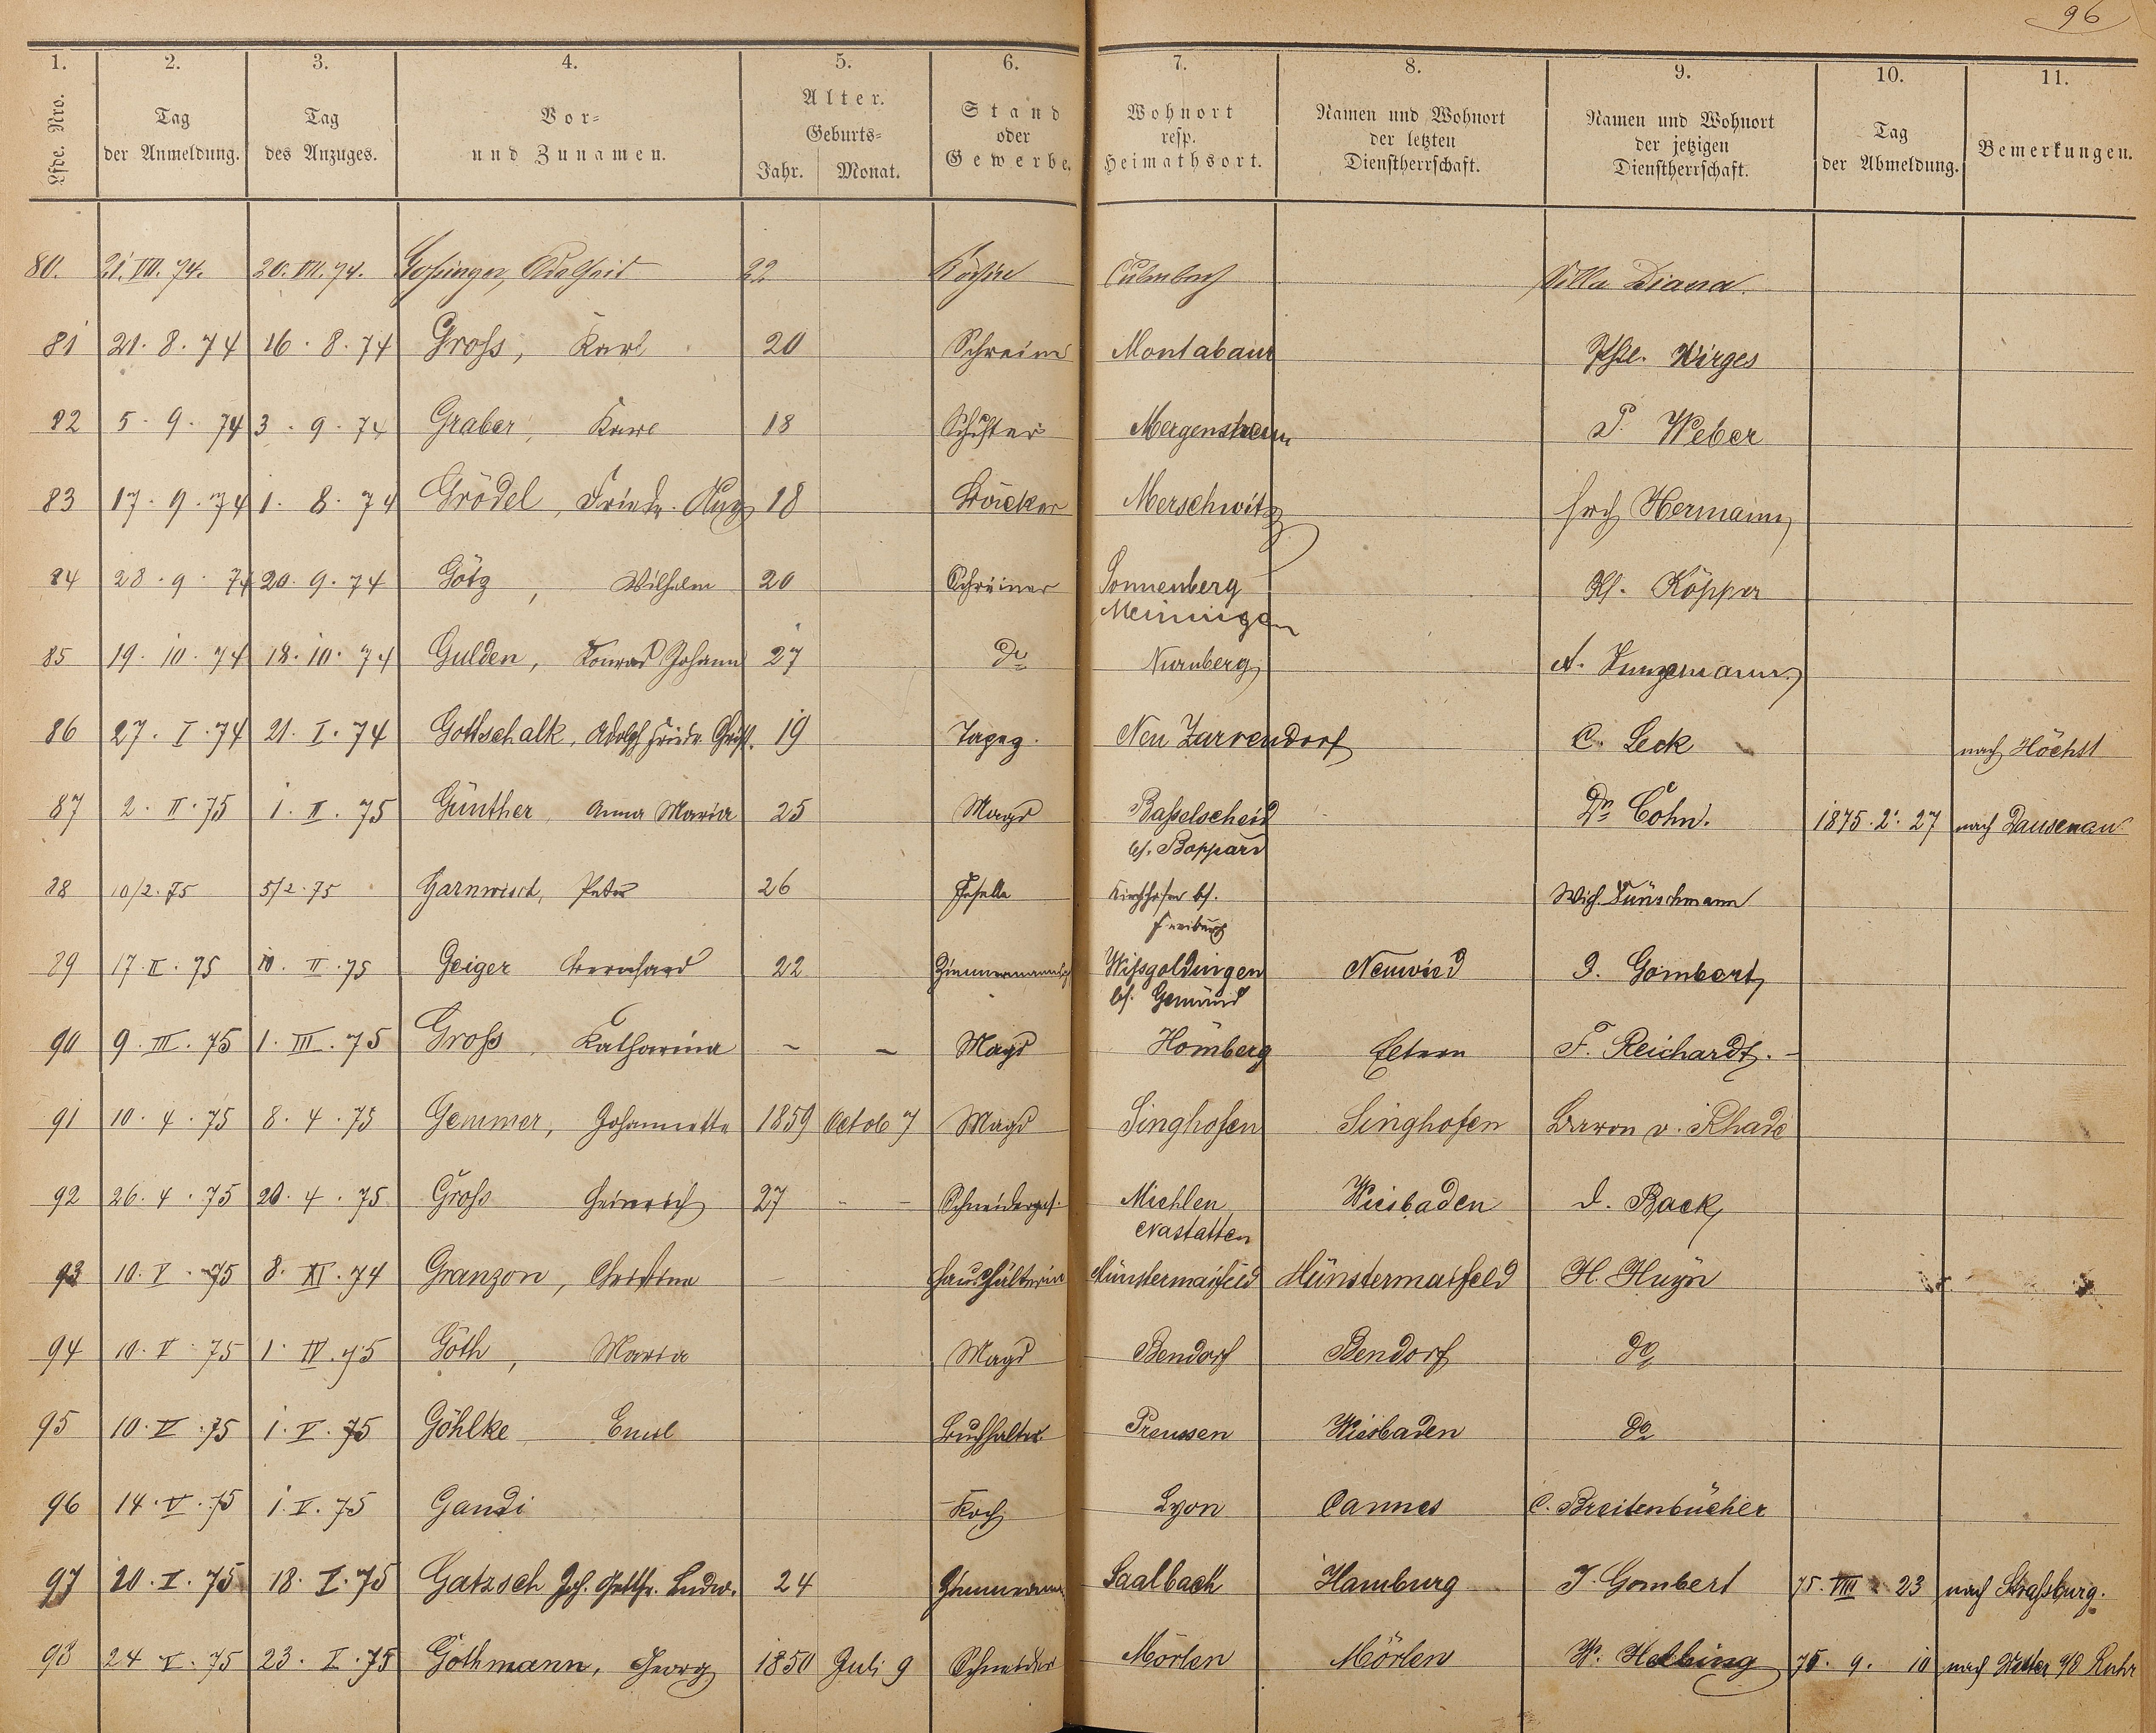 96
1. 2. 3. 4. 5. 6. 7. 8. 9. 10. 11.
Lfde. Nro.
Tag der Anmeldung.
Tag des Anzuges.
Vor- und Zunamen.
Alter. Geburts- Jahr. Monat.
Stand oder Gewerbe.
Wohnort resp. Heimathsort.
Namen und Wohnort der letzten Dienstherrschaft.
Namen und Wohnort der jetzigen Dienstherrschaft.
Tag der Abmeldung.
Bemerkungen.
80. 21. VII. 74. 20. VII. 74. 22 Köchin Culmbach Villa Diana.
81 21. 8. 74 16. 8. 74 Groß, Karl 20 Schreiner Montabaur Wirges
82 5. 9. 74 3. 9. 74 Graber, 18 Mergentheim P. Weber
83 17. 9. 74 1. 8. 74 Grödel, Friedr. Aug 18 Bäcker Merschwitz Hermann
84 28. 9. 74 20. 9. 74 Götz, Wilhelm 20 Schreiner Sonnenberg Ph. Köpper
Meiningen
85 19. 10. 74 18. 10. 74 Gulden, Konrad Johann 27 do Nürnberg A. Jungemann
86 27. I. 74 21. I. 74 Gottschalk, Adolph Friedr. Christ. 19 Tapez. Neu Zarrendorf C. Leck nach Höchst
87 2. II. 75 1. II. 75 Günther, Anna Maria 25 Magd Basselscheid Dr Cohn. 1875. 2. 27 nach Dausenau
bf. Boppard
88 10/2. 75 5/2. 75 Garnwisch, Peter 26 Geselle Kirchhofen bf. Wilh. Dünschmann
Freiburg
89 17. II. 75 10. II. 75 Geiger Bernhard 22 Zimmermann Wißgoldingen Neuwied J. Gombert
bf. Gemünd
90 9. III. 75 1. III. 75 Groß, Katharina - - Magd Hömberg Eltern F. Reichardt. -
91 10. 4. 75 8. 4. 75 Gemmer, Johannette 1859 Octob 7 Magd Singhofen Singhofen Baron v. Rhade
92 26. 4. 75 20. 4. 75 Groß Heinrich 27 - - Schneiderges. Miehlen Wiesbaden J. Back
Nastätten
93 10. V. 75 8. XI. 74 Granzon, Christina Haushälterin Münstermaifeld Münstermaifeld H. Huyn
94 10. V. 75 1. IV. 75 Göth, Maria Magd Bendorf Bendorf do
95 10. V. 75 1. V. 75 Göhlke Emil Buchhalter Preussen Wiesbaden do
96 14. V. 75 1. V. 75 Gandi Koch Lyon Cannes C. Breitenbücher
97 20. V. 75 18. V. 75 Gatzsch Joh. Gottfr. Ludw. 24 Zimmermann Saalbach Hamburg J. Gombert 75. VIII 23 nach Straßburg.
98 24 V. 75 23. V. 75 Gothmann, Georg 1850 Juli 9 Schneider Mörlen Mörlen W. Helbing 75. 9. 10 nach Wetter a/d Ruhr